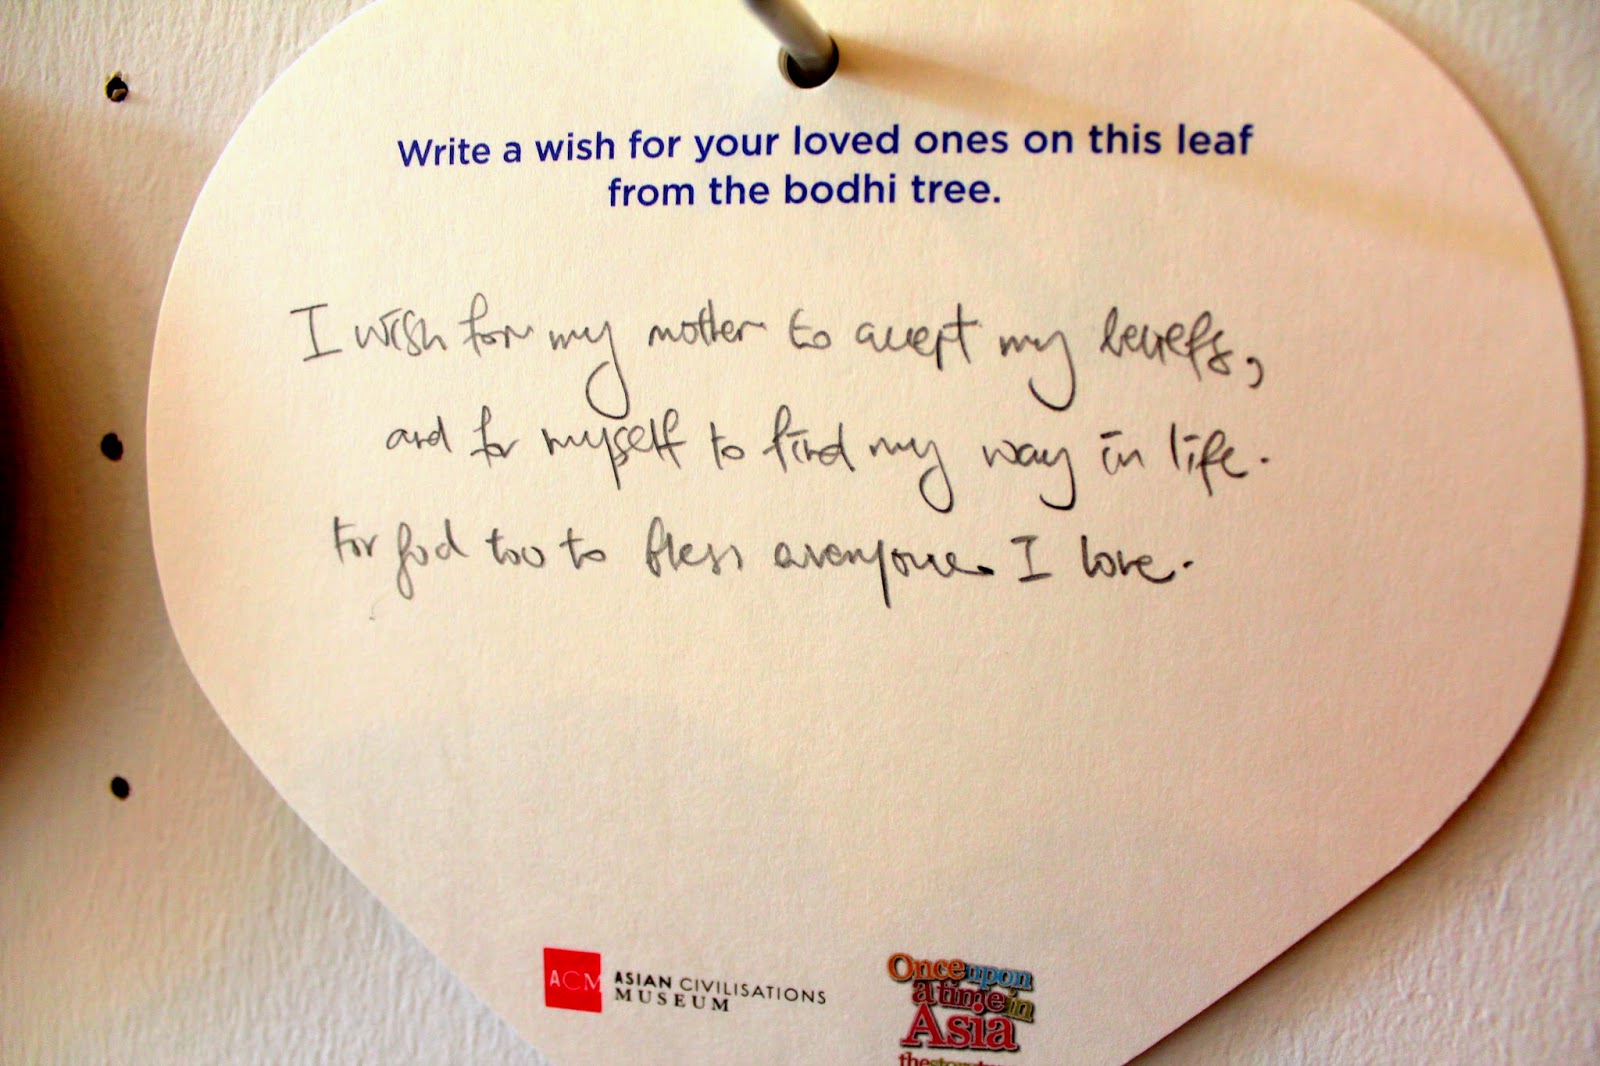 Write a wish for your loved ones on this leaf
from the bodhi tree.
I wish for my mother to accept my beliefs,
and for myself to find my way in life.
For god too to bless everyone I love.
ACM ASIAN CIVILISATIONS
MUSEUM
Once upon
a time in
Asia